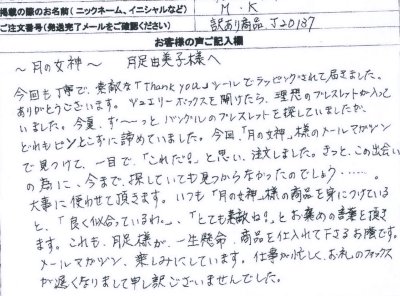 掲載の際のお名前（ニックネーム、イニシャルなど）
M・K
ご注文番号（発送完了メールをご確認ください）
訳あり商品 J20137
お客様の声ご記入欄
～月の女神～ 月足由美子様へ
今回も丁寧で、素敵な「Thank you」シールでラッピングされて届きました。
ありがとうございます。ジュエリーボックスを開けたら、理想のブレスレットが入って
いました。今夏、ず～っとバングルのブレスレットを探していましたが、
どれもピンとこずに諦めていました。今回、「月の女神」様のメールマガジン
で見つけて、一目で、「これだ!」と思い、注文しました。きっと、この出会い
の為に、今まで、探していても見つからなかったのでしょう・・・・・・。
大事に使わせて頂きます。いつも「月の女神」様の商品を身につけている
と、「良く似合っているわ。」、「とても素敵ね!」とお褒めの言葉を頂き
ます。これも、月足様が、一生懸命、商品を仕入れて下さるお陰です。
メールマガジン、楽しみにしています。仕事が忙しく、お礼のファックス
が遅くなりまして申し訳ございませんでした。